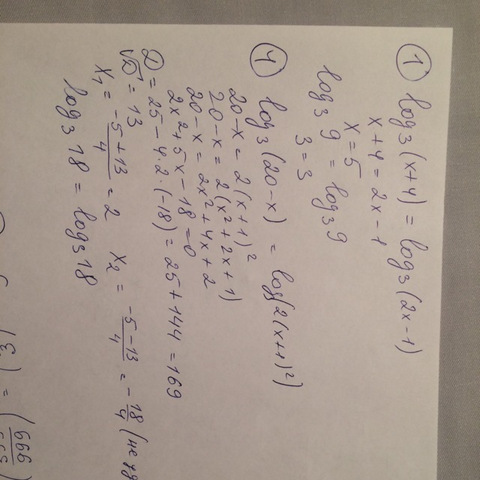 ① log₃(x+4) = log₃(2x-1)
x+4 = 2x-1
x=5
log₃ 9 = log₃ 9
3 = 3
④ log₃(20-x) = log(2(x+1)²)
20-x = 2(x+1)²
20-x = 2(x²+2x+1)
20-x = 2x²+4x+2
2x²+5x-18=0
D = 25 - 4·2·(-18) = 25+144 = 169
√D = 13
x₁ = (-5+13)/4 = 2 x₂ = (-5-13)/4 = -18/4 (не
log₃ 18 = log₃ 18